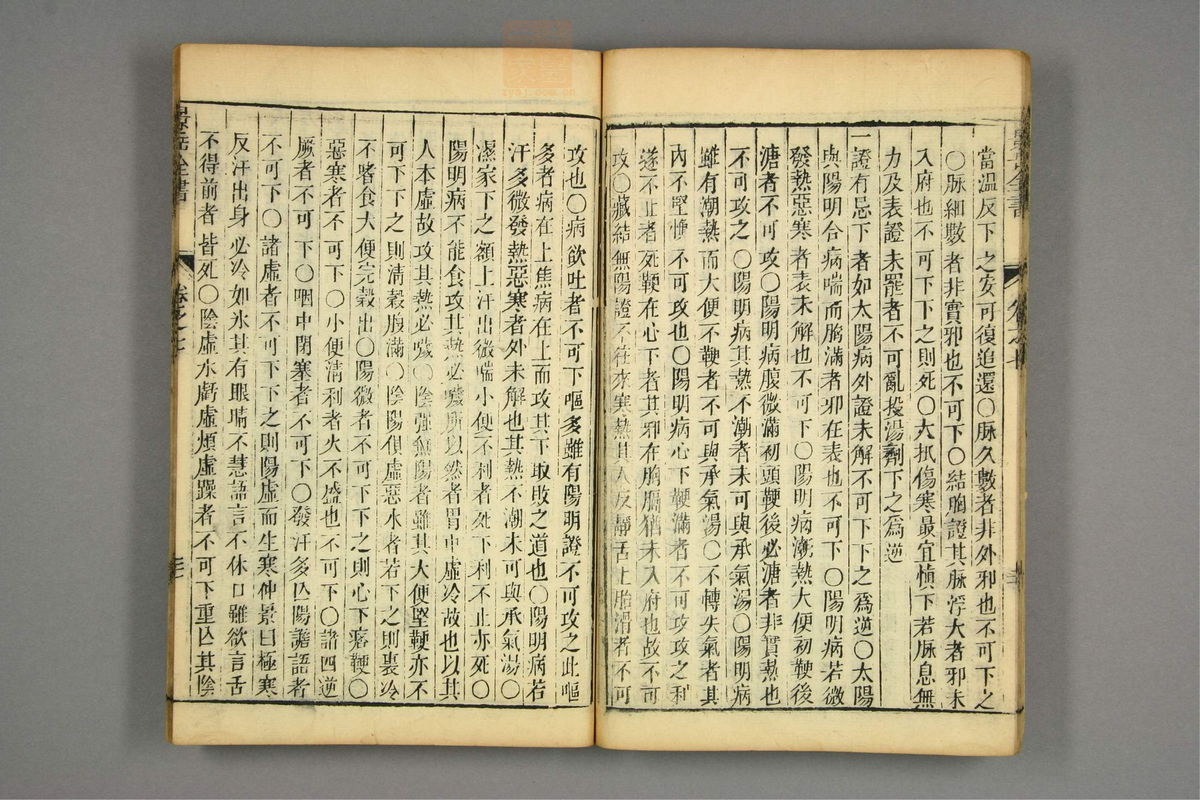 當溫反下之安可復追還〇脉久數者非外邪也不可下之
〇脉細數者非實邪也不可下〇結胸證其脉浮大者邪未
入府也不可下下之則死〇大抵傷寒最宜慎下若脉息無
力及表證未罷者不可亂投湯劑下之爲逆
一證有忌下者如太陽病外證未解不可下下之爲逆〇太陽
與陽明合病喘而胸滿者邪在表也不可下〇陽明病若微
發熱惡寒者表未解也不可下〇陽明病潮熱大便初鞕後
溏者不可攻〇陽明病腹微滿初頭鞕後必溏者非實熱也
不可攻之〇陽明病其熱不潮者未可與承氣湯〇陽明病
雖有潮熱而大便不鞕者不可與承氣湯〇不轉失氣者其
內不堅慎不可攻也〇陽明病心下鞕滿者不可攻攻之利
遂不止者死鞕在心下者其邪在胸膈猶未入府也故不可
攻〇藏結無陽證不往來寒熱其人反靜舌上胎滑者不可
攻也〇病欲吐者不可下嘔多雖有陽明證不可攻之此嘔
多者病在上焦病在上而攻其下取敗之道也〇陽明病若
汗多微發熱惡寒者外未解也其熱不潮未可與承氣湯〇
濕家下之額上汗出微喘小便不利者死下利不止亦死〇
陽明病不能食攻其熱必噦所以然者胃中虛冷故也以其
人本虛故攻其熱必噦〇陰强無陽者雖其大便堅鞕亦不
可下下之則清穀腹滿〇陰陽俱虛惡水者若下之則裏冷
不嗜食大便完穀出〇陽微者不可下下之則心下痞鞕〇
惡寒者不可下〇小便清利者火不盛也不可下〇諸四逆
厥者不可下〇咽中閉塞者不可下〇發汗多亾陽譫語者
不可下〇諸虛者不可下下之則陽虛而生寒仲景曰極寒
反汗出身必冷如氷其有眼睛不慧語言不休口雖欲言舌
不得前者皆死〇陰虛水虧虛煩虛躁者不可下重亾其陰
卷之七